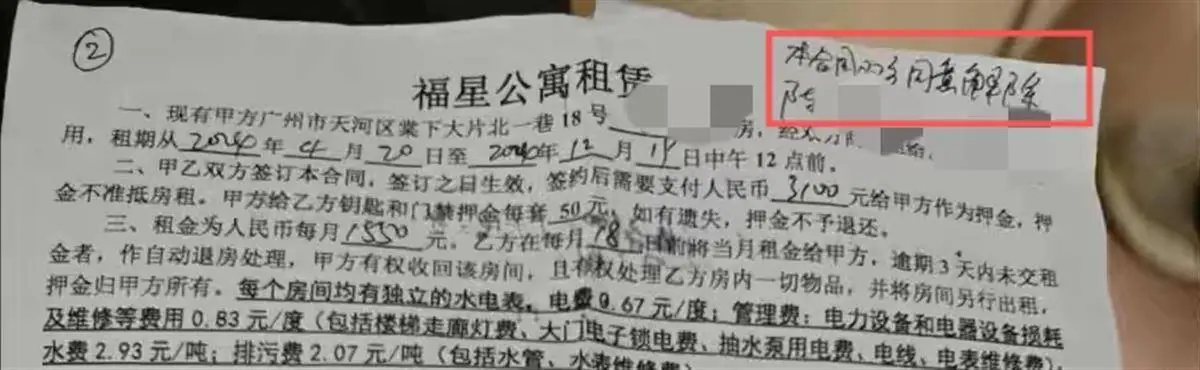 ②
本合同双方同意解除
福星公寓租赁
一、现有甲方广州市天河区棠下大片北一巷18号 房，经双方
用，租期从2024年4月20日至2024年12月19日中午12点前。
二、甲乙双方签订本合同，签订之日生效，签约后需要支付人民币3100元给甲方作为押金，押
金不准抵房租。甲方给乙方钥匙和门禁押金每套50元，如有遗失，押金不予退还。
三、租金为人民币每月1550元。乙方在每月18日前将当月租金给甲方，逾期3天内未交租
金者，作自动退房处理，甲方有权收回该房间，且有权处理乙方房内一切物品，并将房间另行出租，
押金归甲方所有。每个房间均有独立的水电表，电费0.67元/度；管理费：电力设备和电器设备损耗
及维修等费用0.83元/度（包括楼梯走廊灯费、大门电子锁电费、抽水泵用电费、电线、电表维修费）
水费2.93元/吨；排污费2.07元/吨（包括水管、水表维修费）